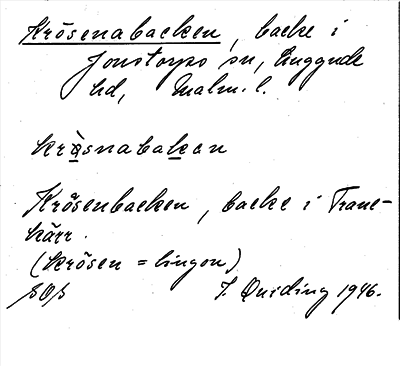 Krösenabacken, backe i
Jonstorps sn, Luggude
hd, Malm. l.
kräsnabakan
Krösenbacken, backe i Trane-
kärr.
(krösen = lingon)
SOB
J. Quiding 1946.